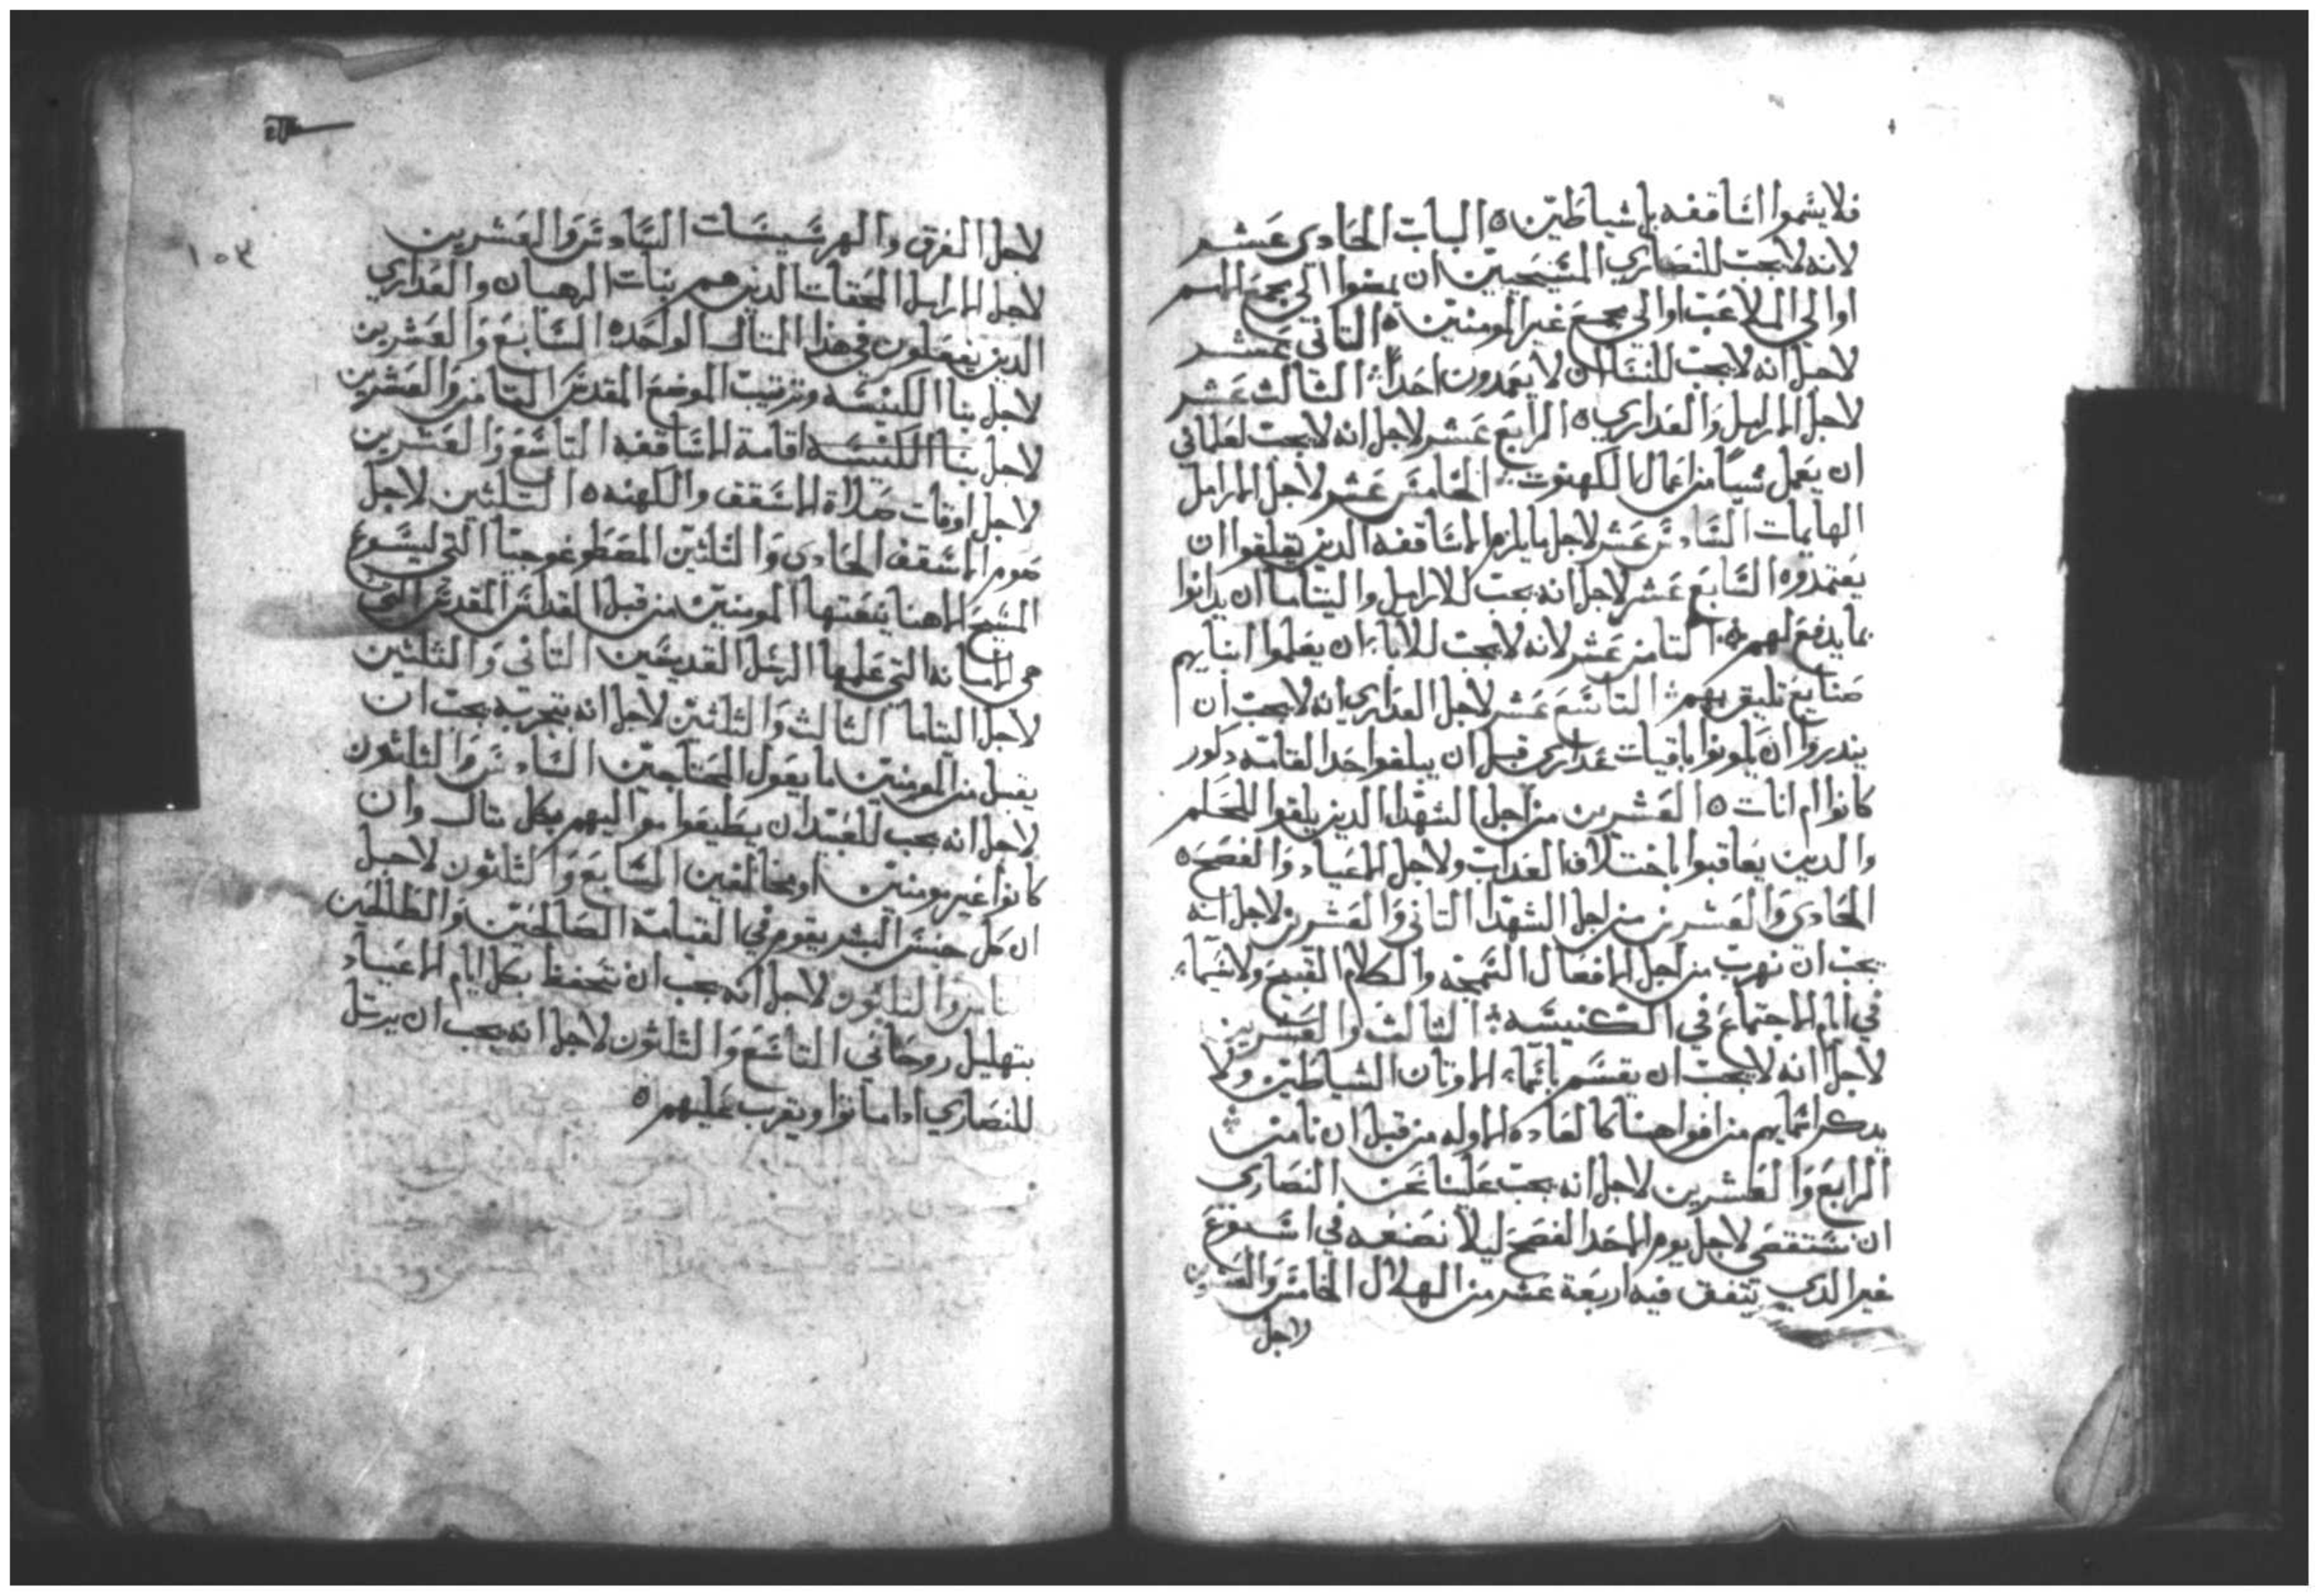 فلا يسموا اساقفه بل شياطين ٥ الباب الحادي عشر
لانه لا يجب للنصاري المسيحيين ان يمضوا الي مجمع الامم
او الي الملاعب او الي مجمع غير المومنين ٥ التاني عشر
لاجل انه لا يجب للنسا ان لا يعمدون احدا ؛ التالت عشر
لاجل الارامل والعداري ٥ الرابع عشر لاجل انه لا يجب لعلماني
ان يعمل شيا من اعمال الكهنوت ؛ الخامس عشر لاجل الارامل
الهايمات السادس عشر لاجل ما يلزم الاساقفه الدين
يعتمدوه السابع عشر لاجل انه يجب للارامل واليتاما ان
بما يدفع لهم ؛ التامن عشر لانه لا يجب للابا ان يعلموا ابنايهم
صنايع تليق بهم ؛ التاسع عشر لاجل العداري انه لا يجب ان
يندروا ان يكونوا باقيات عداري قبل ان يبلغوا حد القامه دكور
كانوا ام انات ٥ العشرين من اجل الشهدا الدين يلقوا للحكم
والدين يعاقبوا باختلاف العداب ولاجل الاعياد والفصح ٥
الحادي والعشرين من اجل الشهدا التاني والعشرين لاجل انه
يجب ان نهرب من اجل الافعال السمجه والكلام القبيح ولاسيما
في ايام الاجتماع في الكنيسه ؛ التالت والعشرين
لاجل انه لا يجب ان يقسم باسماء الاوتان الشياطين ولا
يدكر اسمايهم من افواهنا كالعاده الاوله من قبل ان نامن ؛
الرابع والعشرين لاجل انه يجب علينا نحن النصاري
ان نستقصي لاجل يوم الاحد الفصح ليلا نصنعه في اسبوع
غير الدي يتفق فيه اربعة عشر من الهلال الخامس والعشرين
لاجل
١٥٣
لاجل الفرق والهرسيسات السادس والعشرين
لاجل الارامل الحقات الدين هم بنات الرهبان والعداري
الدين يفعلون في هدا المتال الواحده السابع والعشرين
لاجل بنا الكنيسه وترتيب الموضع المقدس التامن والعشرين
لاجل بنا الكنيسه اقامة الاساقفه التاسع والعشرين
لاجل اوقات صلاة الاسقف والكهنه ٥ التلتين لاجل
صوم الاسقف الحادي والتلتين المصطوغوجيا التي ليسوع
المسيح الاهنا ينعتها المومنين من قبل القداس المقدس التي
هي الامانه التي علمها الرسل القديسين التاني والتلتين
لاجل اليتاما التالت والتلتين لاجل انه بتجربه يجب ان
يقبل من المومنين ما يعول المحتاجين السادس والتلتون
لاجل انه يجب للعبيد ان يطيعوا مواليهم بكل متال وان
كانوا غير مومنين او مخالفين السابع والتلتون لاجل
ان كل جنس البشر يقوم في القيامة الصالحين والطالحين
التامن والتلتون لاجل انه يجب ان نحفظ بكل ايام الاعياد
بتهليل روحاني التاسع والتلتون لاجل انه يجب ان يرتل
للنصاري ادا ماتوا ويقرب عليهم ٥